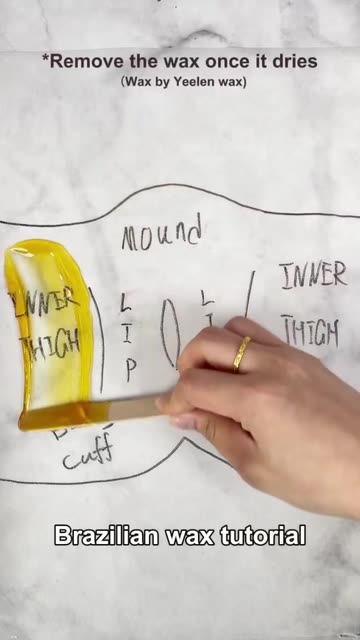 *Remove the wax once it dries
(Wax by Yeelen wax)
Mound
INNER
THIGH
LIP
LI
INNER
THIGH
cuff
Brazilian wax tutorial